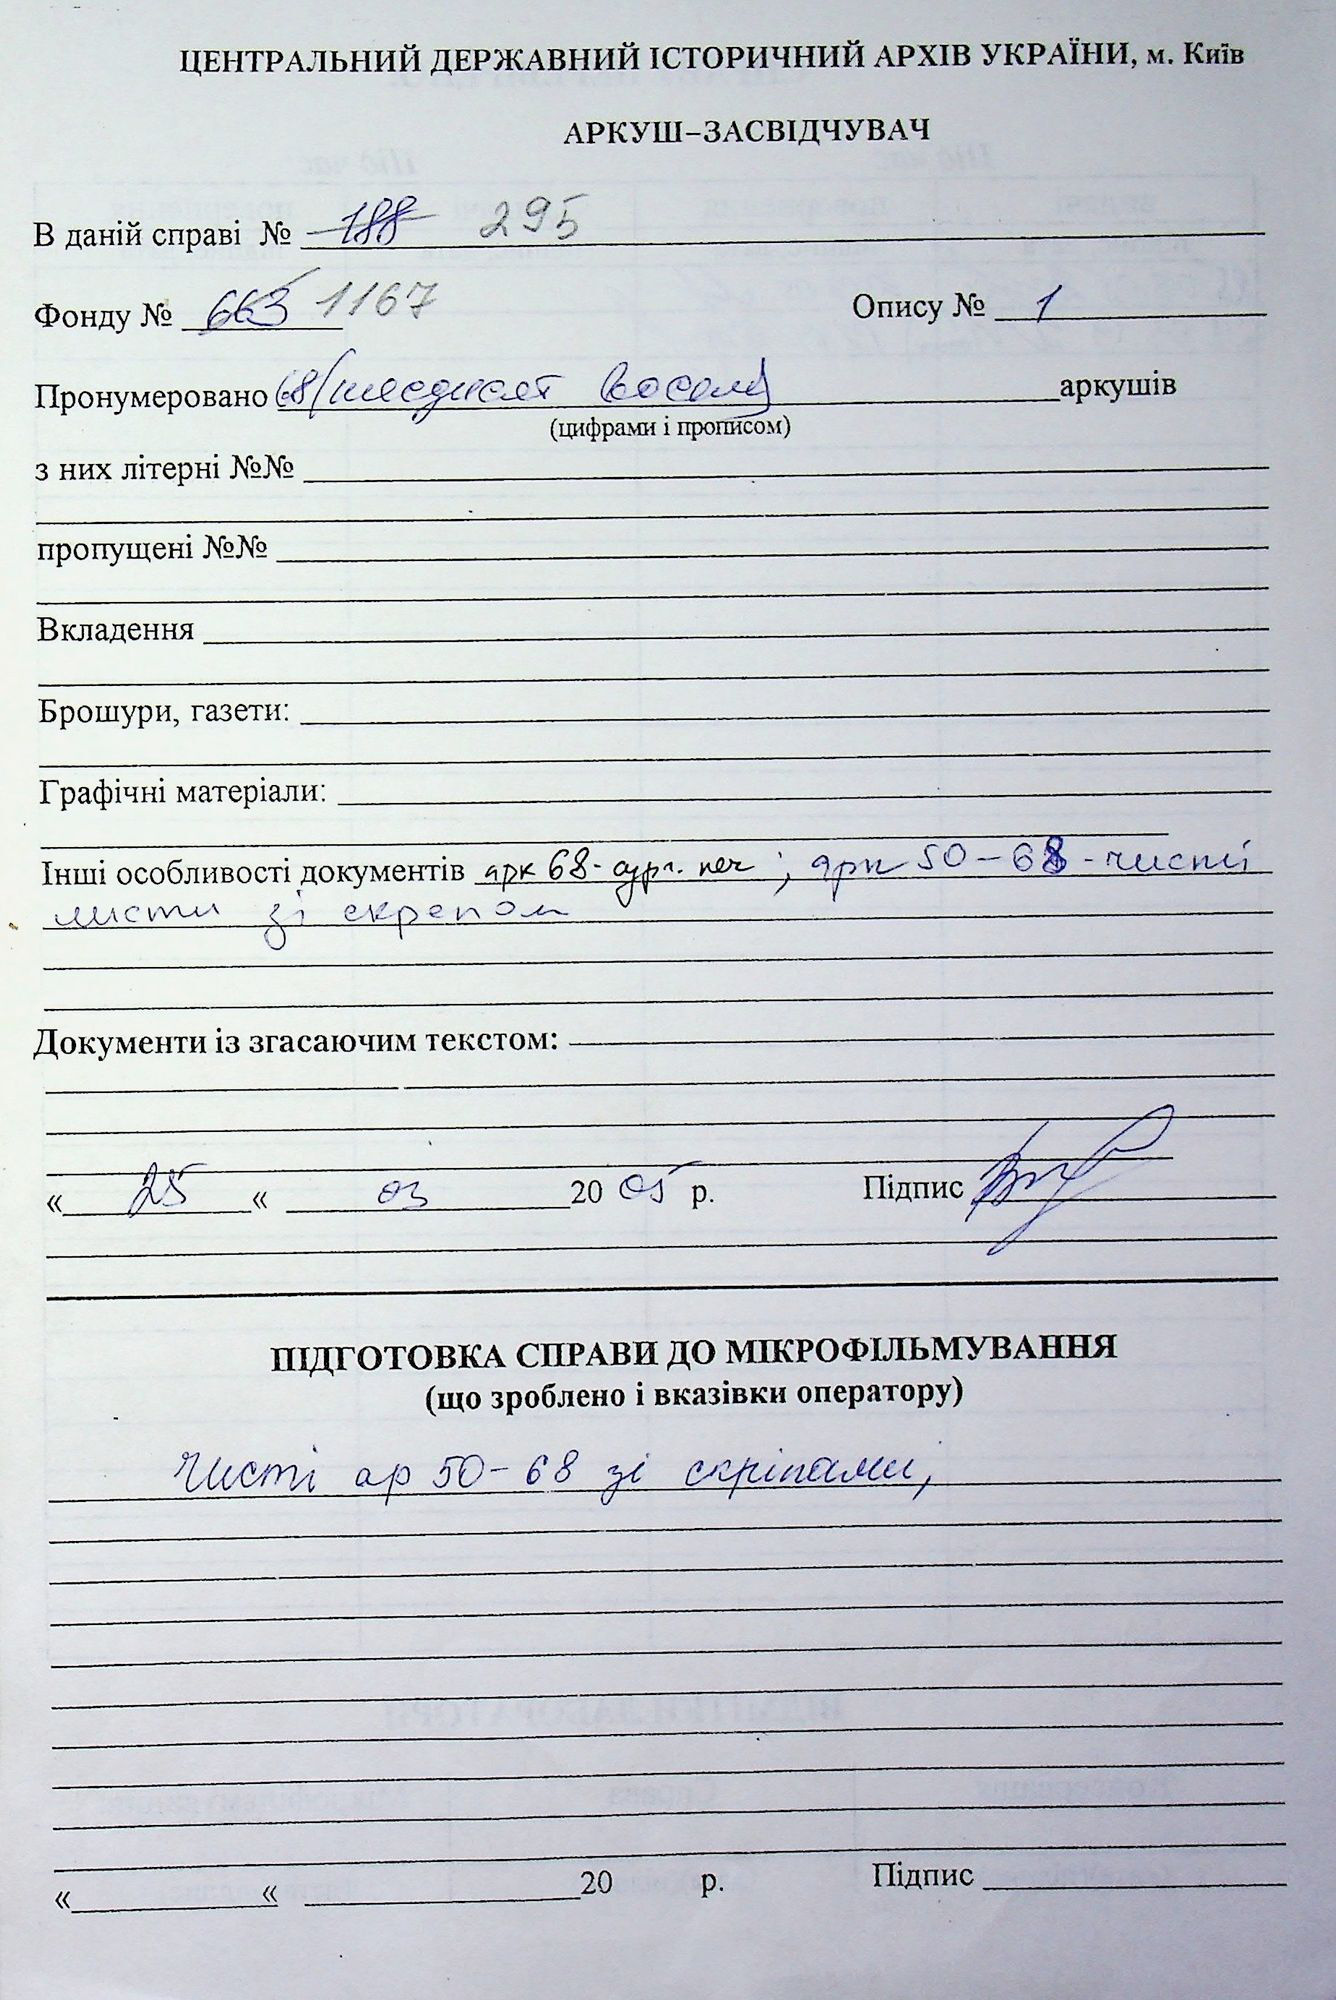 ЦЕНТРАЛЬНИЙ ДЕРЖАВНИЙ ІСТОРИЧНИЙ АРХІВ УКРАЇНИ, м. Київ
АРКУШ–ЗАСВІДЧУВАЧ
В даній справі № 188 295
Фонду № 663 1167 Опису № 1
Пронумеровано 68 (шісдисят восом) аркушів
(цифрами і прописом)
з них літерні №№
пропущені №№
Вкладення
Брошури, газети:
Графічні матеріали:
Інші особливості документів арк 68 - сург. печ ; арк 50 – 68 - чисті
листи зі скрепом
Документи із згасаючим текстом:
« 25 « 03 20 05 р. Підпис
ПІДГОТОВКА СПРАВИ ДО МІКРОФІЛЬМУВАННЯ
(що зроблено і вказівки оператору)
Чисті ар 50 – 68 зі скріпами,
« « 20 р. Підпис